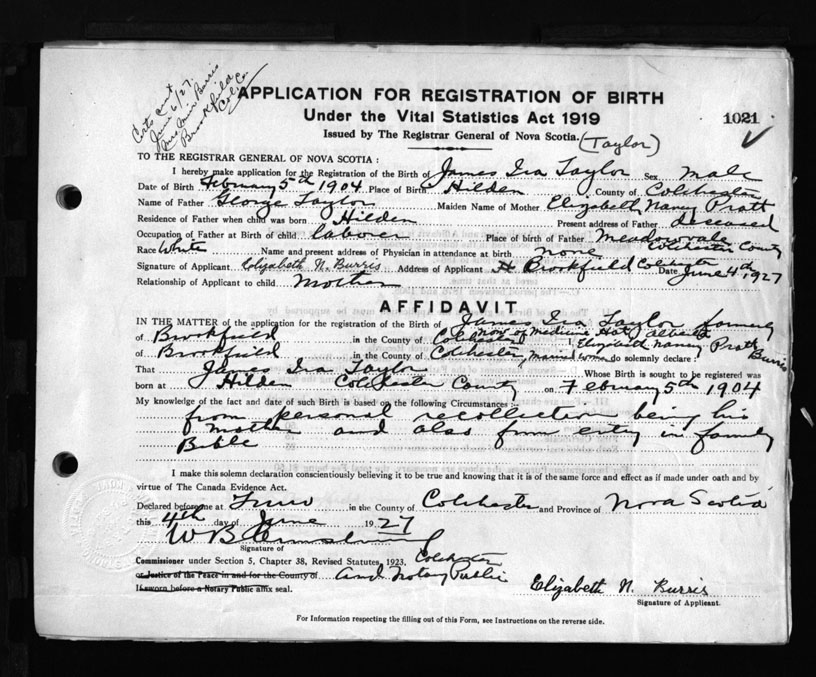 Certs sent
June 6/27.
Mrs Burris
Brookfield
Col Co.
APPLICATION FOR REGISTRATION OF BIRTH
Under the Vital Statistics Act 1919
1021
Issued by The Registrar General of Nova Scotia.
(Taylor)
TO THE REGISTRAR GENERAL OF NOVA SCOTIA :
I hereby make application for the Registration of the Birth of James Ira Taylor Sex male
Date of Birth February 5th 1904 Place of Birth Hilden County of Colchester
Name of Father George Taylor Maiden Name of Mother Elizabeth Nancy Pratt
Residence of Father when child was born Hilden Present address of Father deceased
Occupation of Father at Birth of child laborer Place of birth of Father Meadowvale Colchester County
Race White Name and present address of Physician in attendance at birth none
Signature of Applicant Elizabeth N. Burris Address of Applicant Brookfield Colchester Date June 4th, 1927
Relationship of Applicant to child mother
AFFIDAVIT
IN THE MATTER of the application for the registration of the Birth of James Ira Taylor formerly
of Brookfield in the County of Colchester now of Medicine Hat, Alberta
I Elizabeth Nancy Pratt Burris
of Brookfield in the County of Colchester, married woman do solemnly declare :
That James Ira Taylor Whose Birth is sought to be registered was
born at Hilden Colchester County on February 5th 1904
My knowledge of the fact and date of such Birth is based on the following Circumstances :-
from personal recollection being his
mother and also from entry in family
Bible
I make this solemn declaration conscientiously believing it to be true and knowing that it is of the same force and effect as if made under oath and by
virtue of The Canada Evidence Act.
Declared before me at Truro in the County of Colchester and Province of Nova Scotia
this 4th day of June 1927
W B
Signature of
Commissioner under Section 5, Chapter 38, Revised Statutes, 1923, Colchester
or Justice of the Peace in and for the County of and Notary Public
If sworn before a Notary Public affix seal.
Elizabeth N. Burris
Signature of Applicant.
For Information respecting the filling out of this Form, see Instructions on the reverse side.